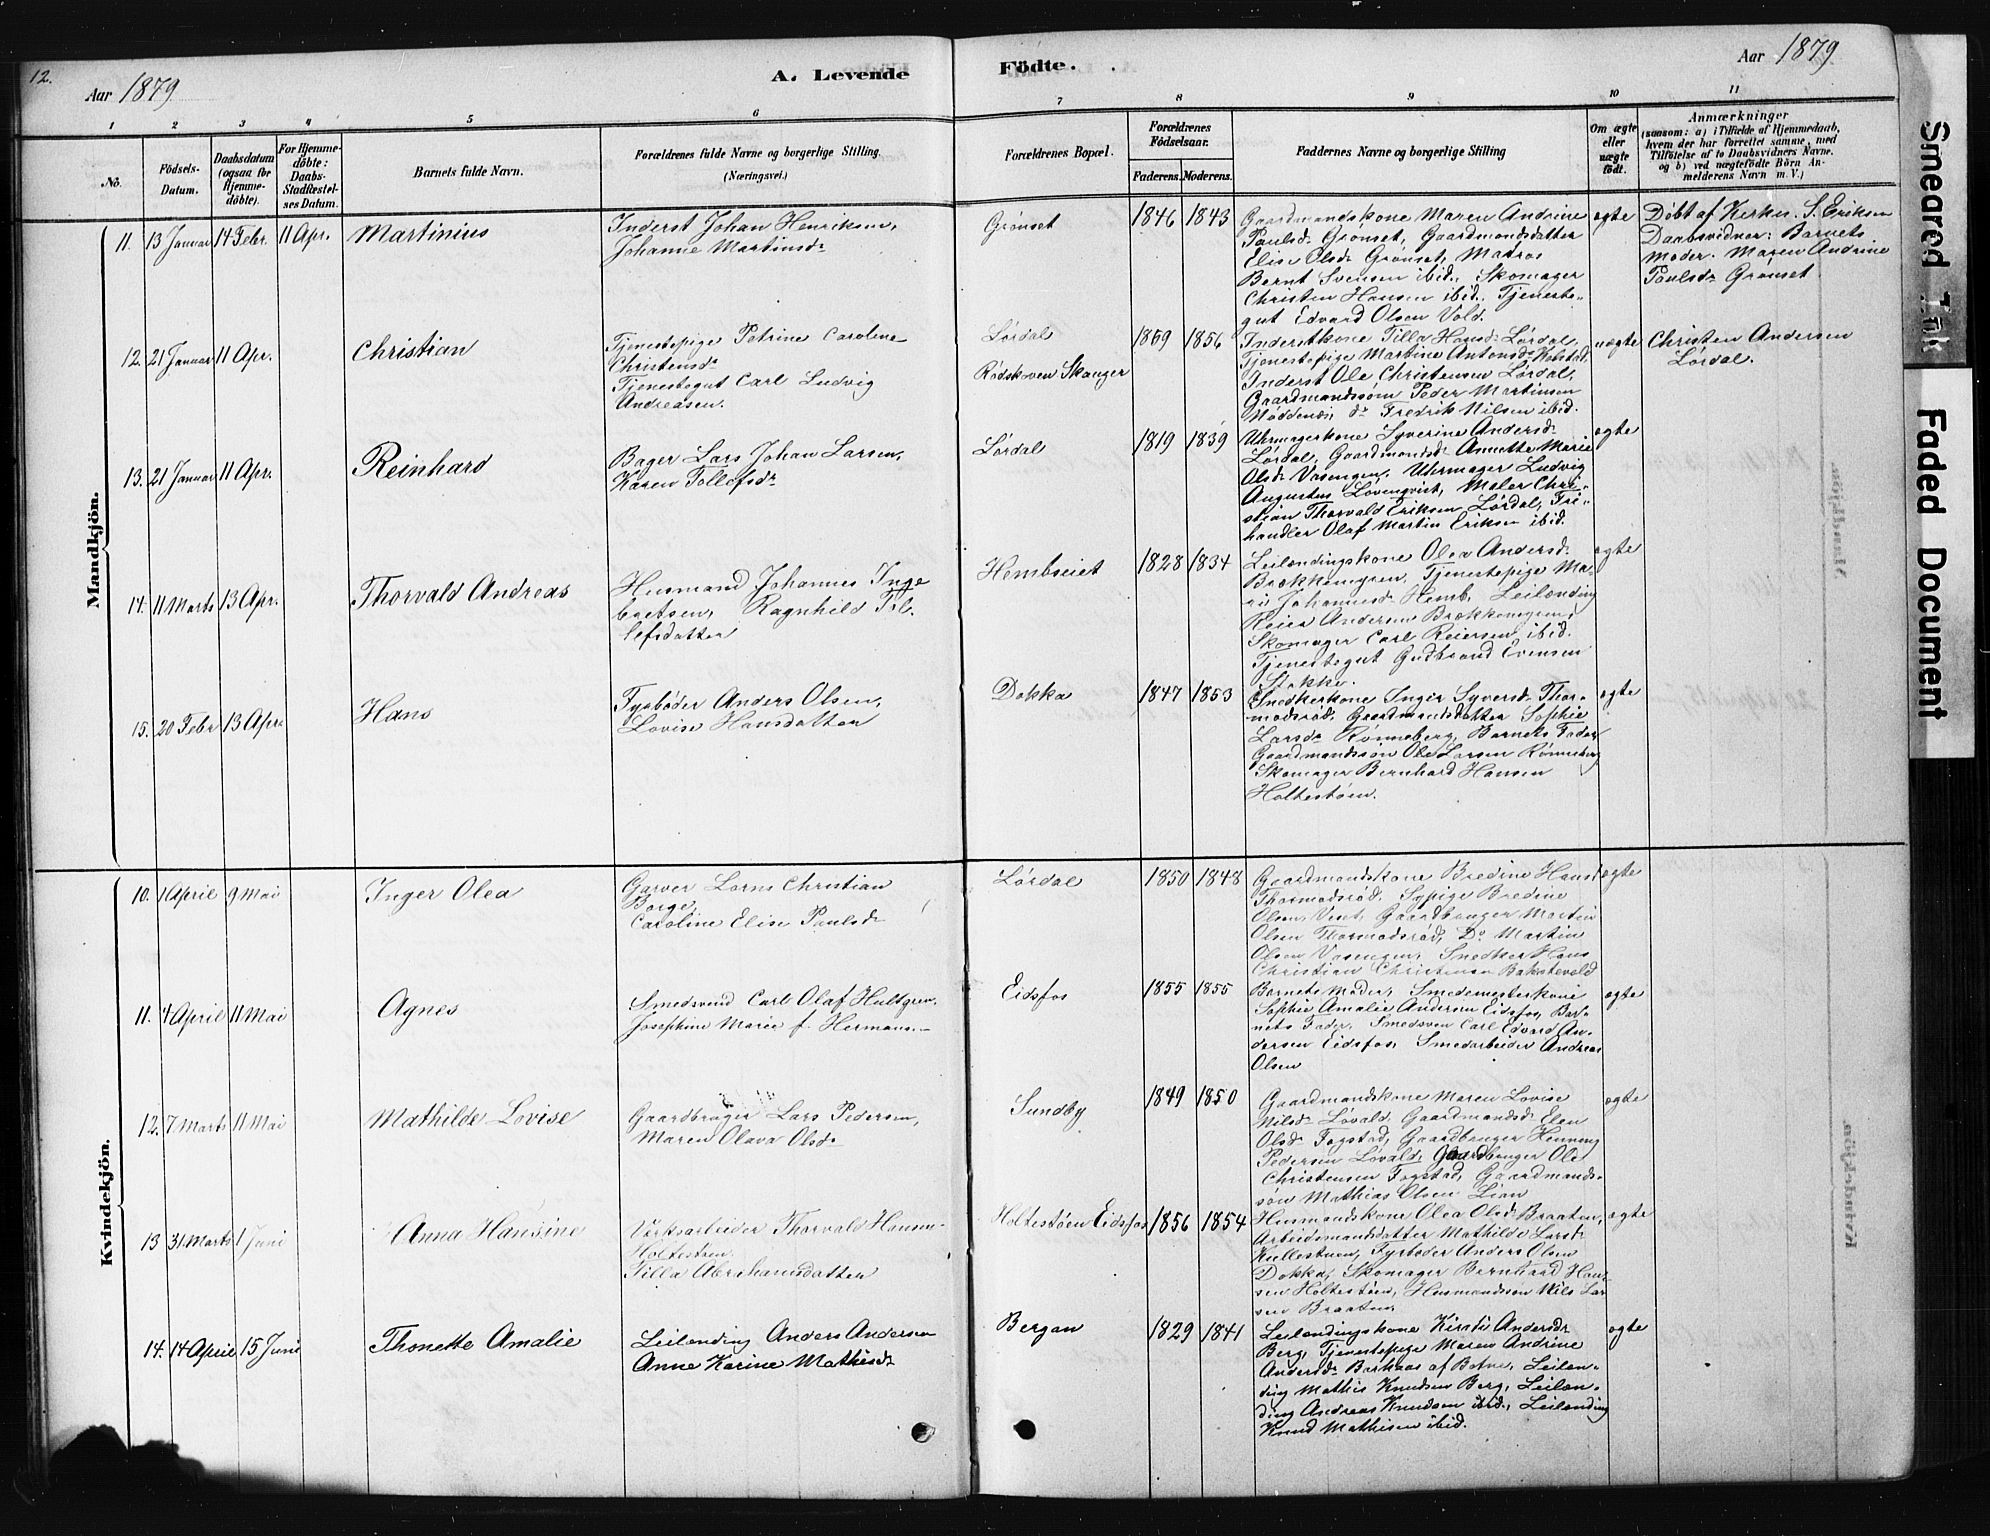 12.
Aar 1879
A. Levende
Födte.
Aar 1879
1 2 3 4 5 6 7 8 9 10 11
No.
Födsels-Datum.
Daabsdatum (ogsaa for Hjemmedöbte).
For Hjemmedöbte: Daabs-Stadfæstelses Datum.
Barnets fulde Navn.
Forældrenes fulde Navne og borgerlige Stilling.
(Næringsvei.)
Forældrenes Bopæl.
Forældrenes Födselsaar.
Faderens. Moderens.
Faddernes Navne og borgerlige Stilling
Om ægte eller uægte födt.
Anmærkninger
(saasom: a) i Tilfælde af Hjemmedaab, hvem der har forrettet samme, med Tilföielse af to Daabsvidners Navne, og b) ved uægtefödte Börn Anmelderens Navn m. V.)
Mandkjön.
11. 13 Januar 14 Febr. 11 Apr. Martinius
Inderst Johan Henriksen,
Johanne Martinsdr
Grønset 1846 1843
Gaardmandskone Maren Andrine
Paulsdr Grønset, Gaardmandsdatter
Elise Olsdr Grønset, Matros
Bernt Svensen ibid., Skomager
Christen Hansen ibid., Tjeneste-
gut Edvard Olsen Vold.
ægte
Døbt af Kirkes. S. Eriksen
Daabsvidner: Barnets
Moder. Maren Andrine
Paulsdr Grønset
12. 21 Januar 11 Apr. Christian
Tjenestepige Petrine Caroline
Christensdr
Tjenestegut Carl Ludvig
Andreasen.
Lørdal
Rødskoven Skanger
1859 1856
Inderstkone Tilla Hansdr Lørdal,
Tjenestepige Martine Antonsdr Kolstad,
Inderst Ole Christensen Lørdal,
Gaardmandssøn Peder Martinsen
Nøddenæs, dr Fredrik Nilsen ibid.
uægte
Christen Andersen
Lørdal.
13. 21 Januar 11 Apr. Reinhard
Bager Lars Johan Larsen,
Karen Tollefsdr
Lørdal 1819 1839
Uhrmagerkone Syverine Andersdr
Lørdal, Gaardmandsdr Annette Marie
Olsdr Vasengen, Uhrmager Ludvig
Augustus Løvenqvist, Maler Chri-
stian Thorvald Eriksen Lørdal, Fri-
handler Olaf Martin Eriksen ibid.
ægte
14. 11 Marts 13 Apr. Thorvald Andreas
Husmand Johannes Inge
bretsen, Ragnhild Tol-
lefsdatter
Hembseiet 1828 1834
Leilændingskone Olea Andersdr
Brækkemyren, Tjenestepige Ma-
ri Johannesdr Hemb, Leilænding
Reier Andersen Brækkemyren,
Skomager Carl Reiersen ibid.
Tjenestegut Gudbrand Evensen
Stokke.
ægte
15. 20 Febr 13 Apr. Hans
Fyrbøder Anders Olsen,
Lovise Hansdatter
Dokka 1847 1853
Snedkerkone Inger Syversdr Thor-
modsrød, Gaardmandsdatter Sophie
Larsdr Rønneberg, Barnets Fader,
Gaardmandssøn Ole Larsen Rønneberg
Skomager Bernhard Hansen
Holtestøen.
ægte
Kvindekjön.
10. 1 April 9 Mai Inger Olea
Garver Lorns Christian
Borge,
Caroline Elise Paulsdr
Lørdal 1850 1848
Gaardmandskone Bredine Hansd
Thormodsrød, Sypige Bredine
Olsen Veset, Gaardbruger Martin
Olsen Thormodsrød, Do Martin
Olsen Vasengen, Snedker Hans
Christian Christensen Bakstevold
ægte
11. 4 April 11 Mai Agnes
Smedsvend Carl Olaf Hultgren,
Josephine Marie f. Hermans.
Eidsfos 1855 1855
Barnets Moder, Smedemesterkone
Sophie Amalie Andersen Eidsfos, Bar-
nets Fader, Smedsven Carl Edvard An-
dersen Eidsfos, Smedarbeider Andreas
Olsen
ægte
12. 7 Marts 11 Mai Mathilde Lovise
Gaardbruger Lars Pedersen,
Maren Olava Olsdr
Sundby 1849 1850
Gaardmandskone Maren Lovise
Nilsdr Løvald, Gaardmandsdr Elen
Olsdr Fogstad, Gaardbruger Henning
Pedersen Løvald, Gaardbruger Ole
Christensen Fogstad, Gaardmands-
søn Mathias Olsen Lian
ægte
13 31 Marts 1 Juni Anna Hansine
Verksarbeider Thorvald Hansen
Holtestøen
Tilla Abrahamsdatter
Holtestøen Eidsfos 1856 1854
Husmandskone Olea Olsdr Braaten,
Arbeidsmandsdatter Mathilde Larsdr
Kullestuen, Fyrbøder Anders Olsen
Dokka, Skomager Bernhard Han-
sen Holtestøen, Husmandssøn Nils Lar
sen Braaten.
ægte
14. 14 April 15 Juni Thonette Amalie
Leilænding Anders Andersen
Anne Karine Mathisdr
Bergan 1829 1841
Leilændingskone Kirsti Andersdr
Berg, Tjenestepige Maren Andrine
Andersdr Barkaas af Botne, Leilæn-
ding Mathis Knudsen Berg, Leilæn-
ding Andreas Knudsen ibid., Leilænding
Knud Mathisen ibid.
ægte
Smeared Ink
Faded Document